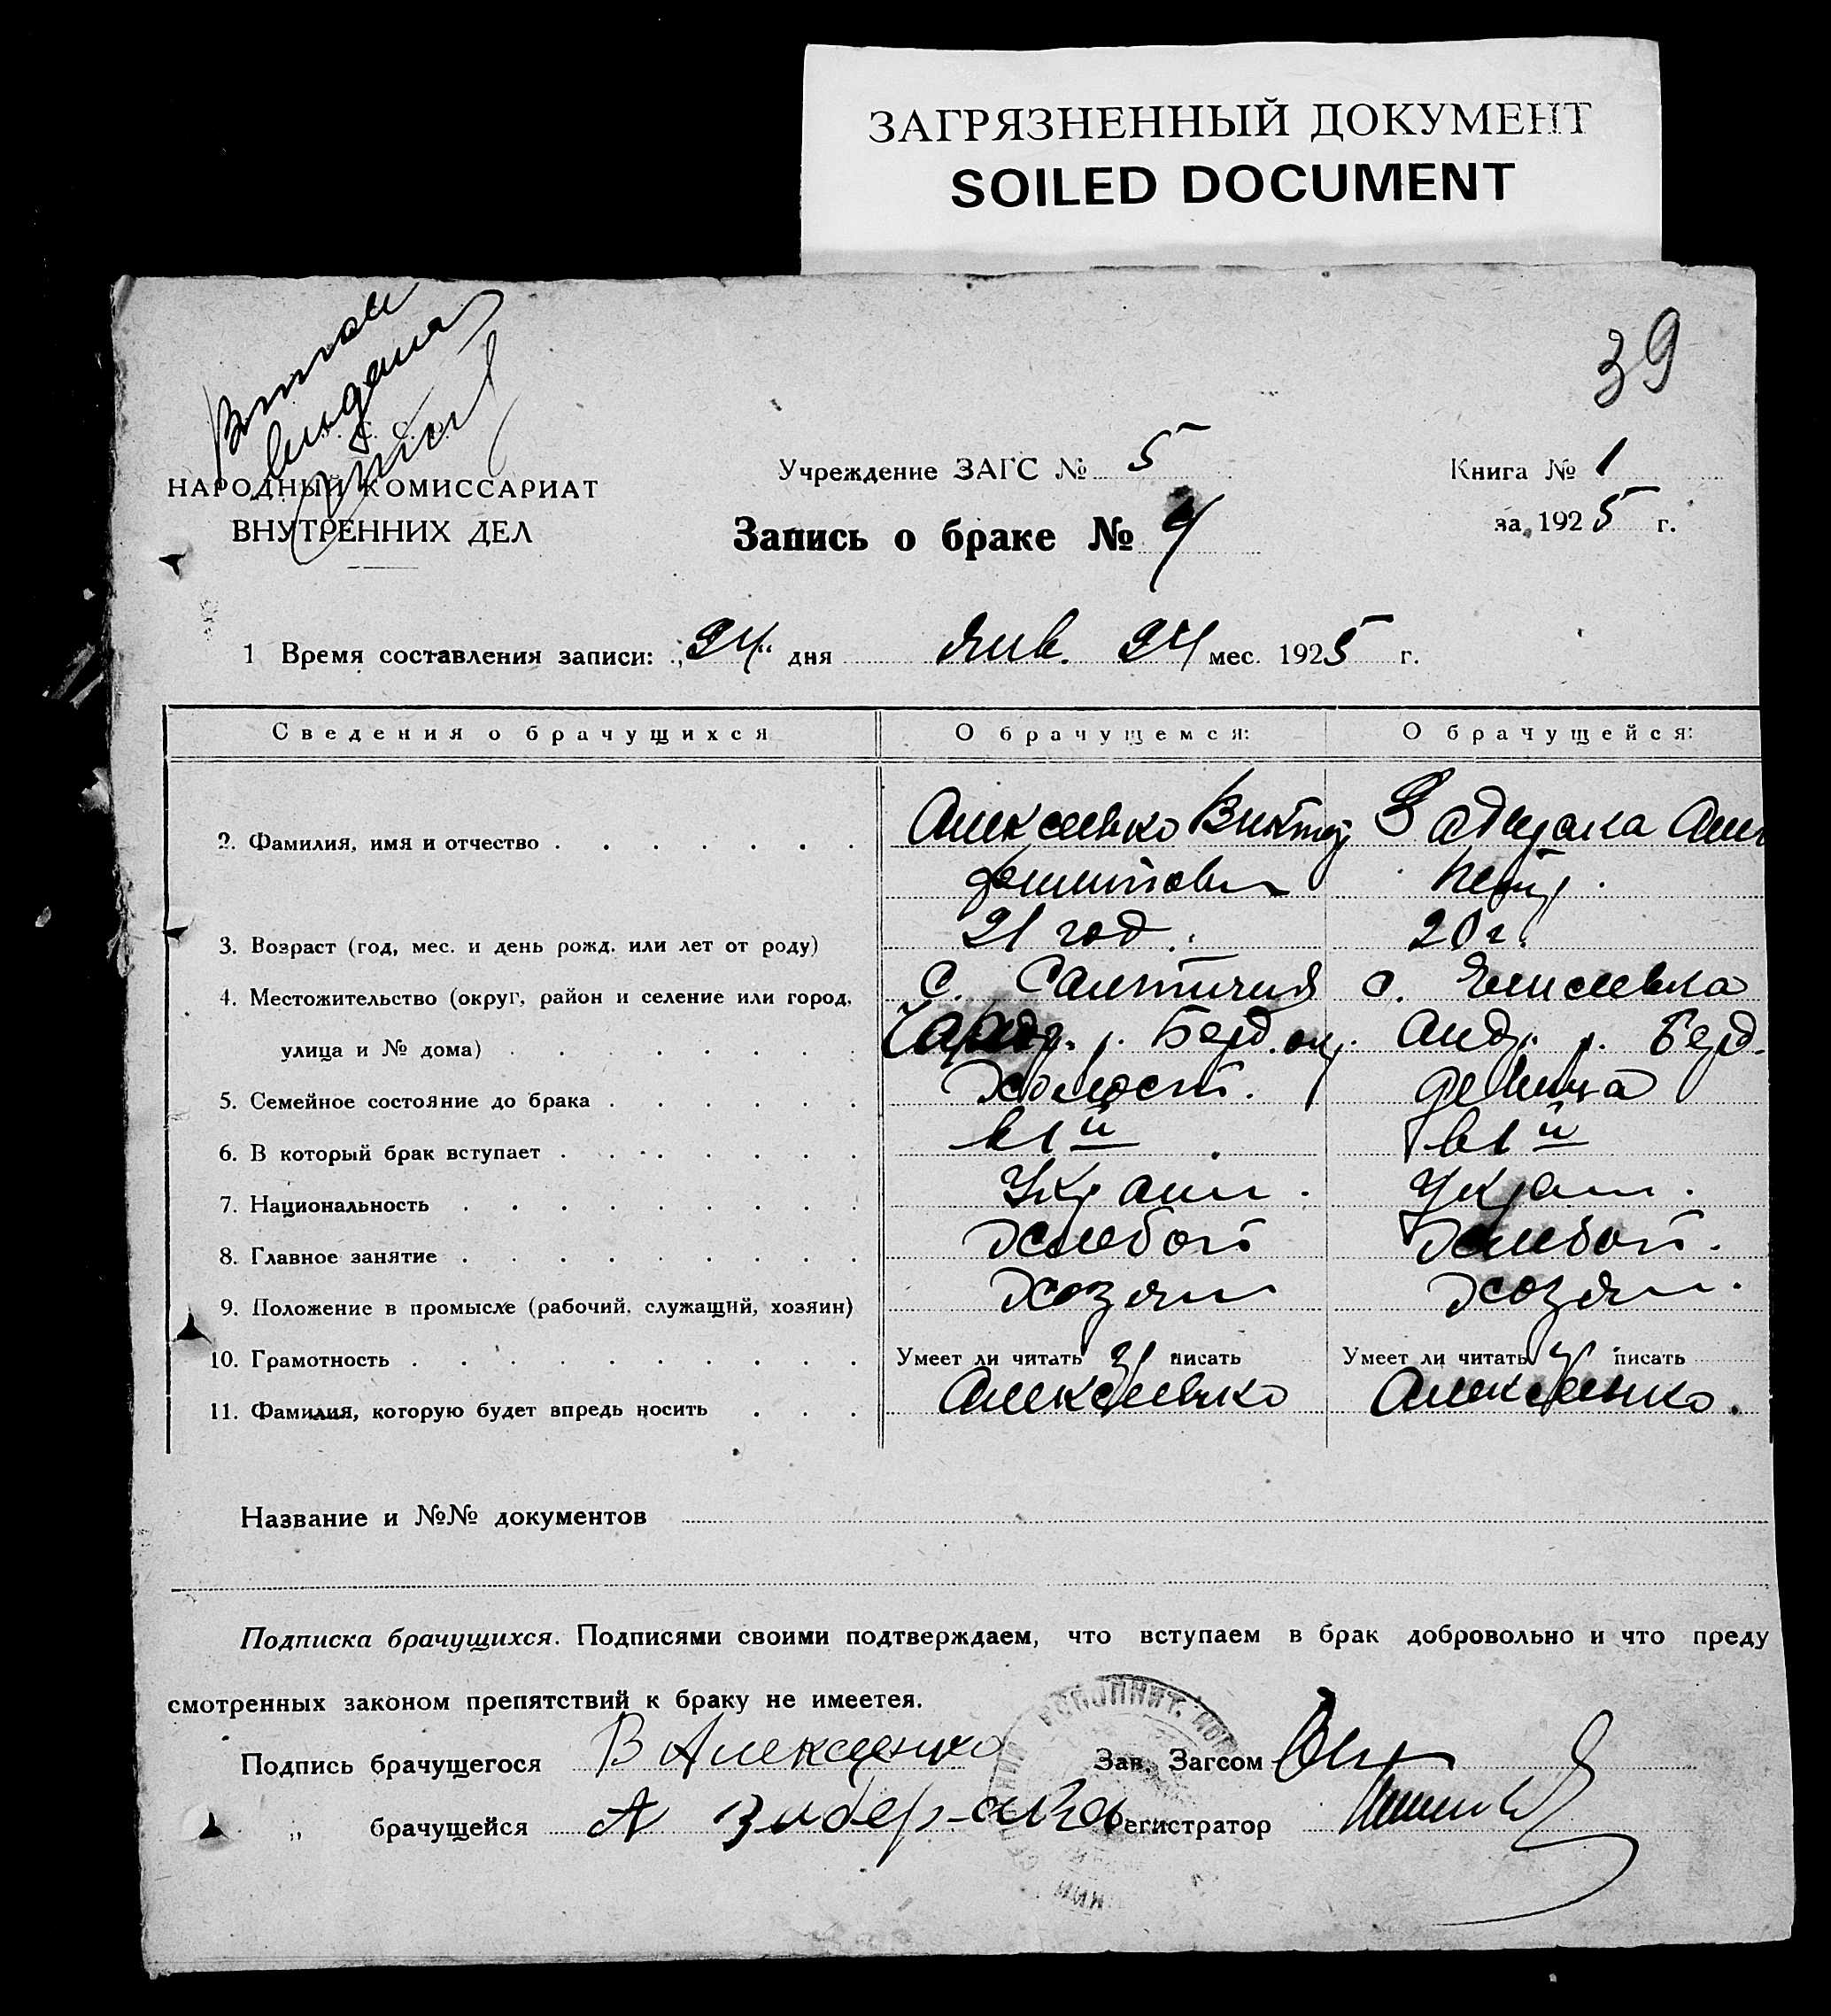 ЗАГРЯЗНЕННЫЙ ДОКУМЕНТ
SOILED DOCUMENT
39
НАРОДНЫЙ КОМИССАРИАТ
ВНУТРЕННИХ ДЕЛ
Учреждение ЗАГС № 5
Книга № 1
за 1925 г.
Запись о браке № 4
1 Время составления записи: „24“ дня Янв. 24 мес. 1925 г.
Сведения о брачущихся О брачущемся: О брачущейся:
2. Фамилия, имя и отчество Алексеенко Виктор
Петр.
3. Возраст (год, мес. и день рожд. или лет от роду) 21 год. 20 г.
4. Местожительство (округ, район и селение или город, с. Салтичия с. Елисеевка
улица и № дома) р. Берд. окр. Андр. р. Берд.
5. Семейное состояние до брака Холост. девица
6. В который брак вступает в 1й в 1й
7. Национальность Украин. Украин.
8. Главное занятие Хлебоп Хлебоп.
9. Положение в промысле (рабочий, служащий, хозяин) Хозяин Хозяин.
10. Грамотность Умеет ли читать писать Умеет ли читать писать
11. Фамилия, которую будет впредь носить Алексеенко Алексеенко.
Название и №№ документов
Подписка брачущихся. Подписями своими подтверждаем, что вступаем в брак добровольно и что преду
смотренных законом препятствий к браку не имеетея.
Подпись брачущегося В Алексеенко Зав. Загсом
„ брачущейся А Регистратор